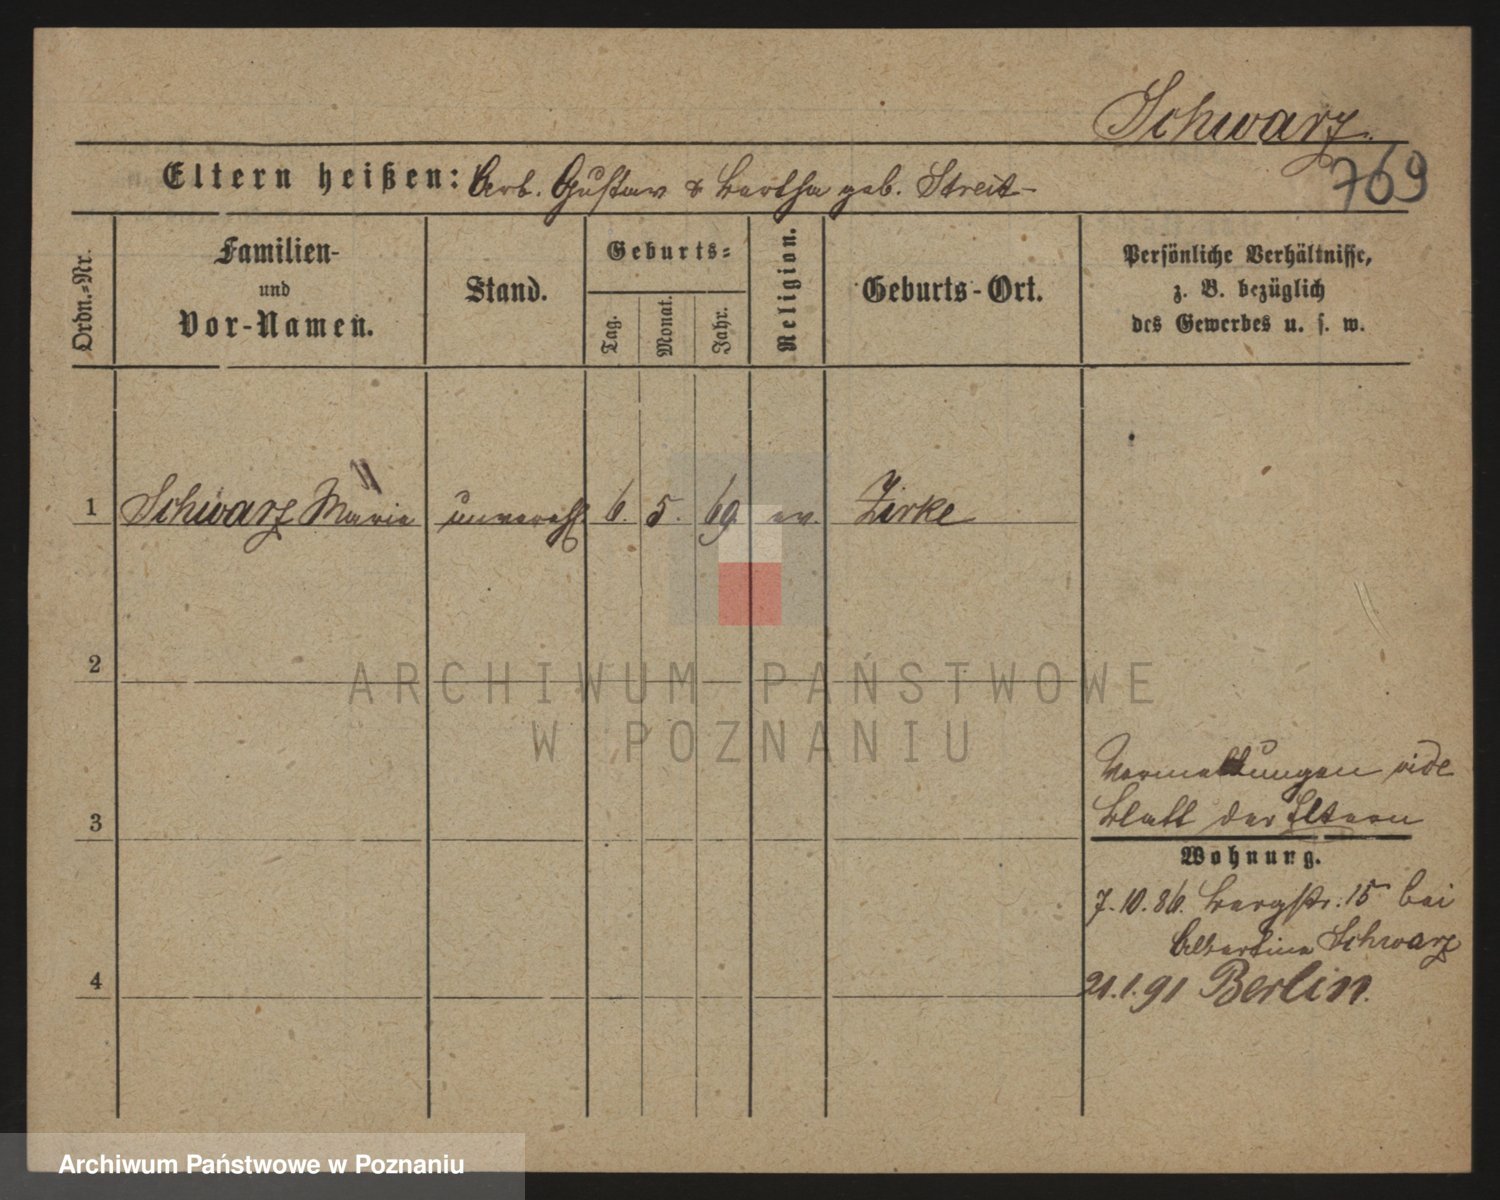 Schwarz.
769
Eltern heißen: Arb. Gustav & Bertha geb. Streit
Ordn.-Nr.
Familien-
und
Vor-Namen.
Stand.
Geburts-
Tag.
Monat.
Jahr.
Religion.
Geburts-Ort.
Persönliche Verhältnisse,
z. B. bezüglich
des Gewerbes u. s. w.
1 Schwarz Marie unvereh. 6. 5. 69 ev. Zirke
2
3
4
Vermeldungen vide
Blatt der Eltern
Wohnung.
7.10.86. Bergstr. 15 bei
Albertine Schwarz
21.1.91 Berlin.
ARCHIWUM PAŃSTWOWE
W POZNANIU
Archiwum Państwowe w Poznaniu